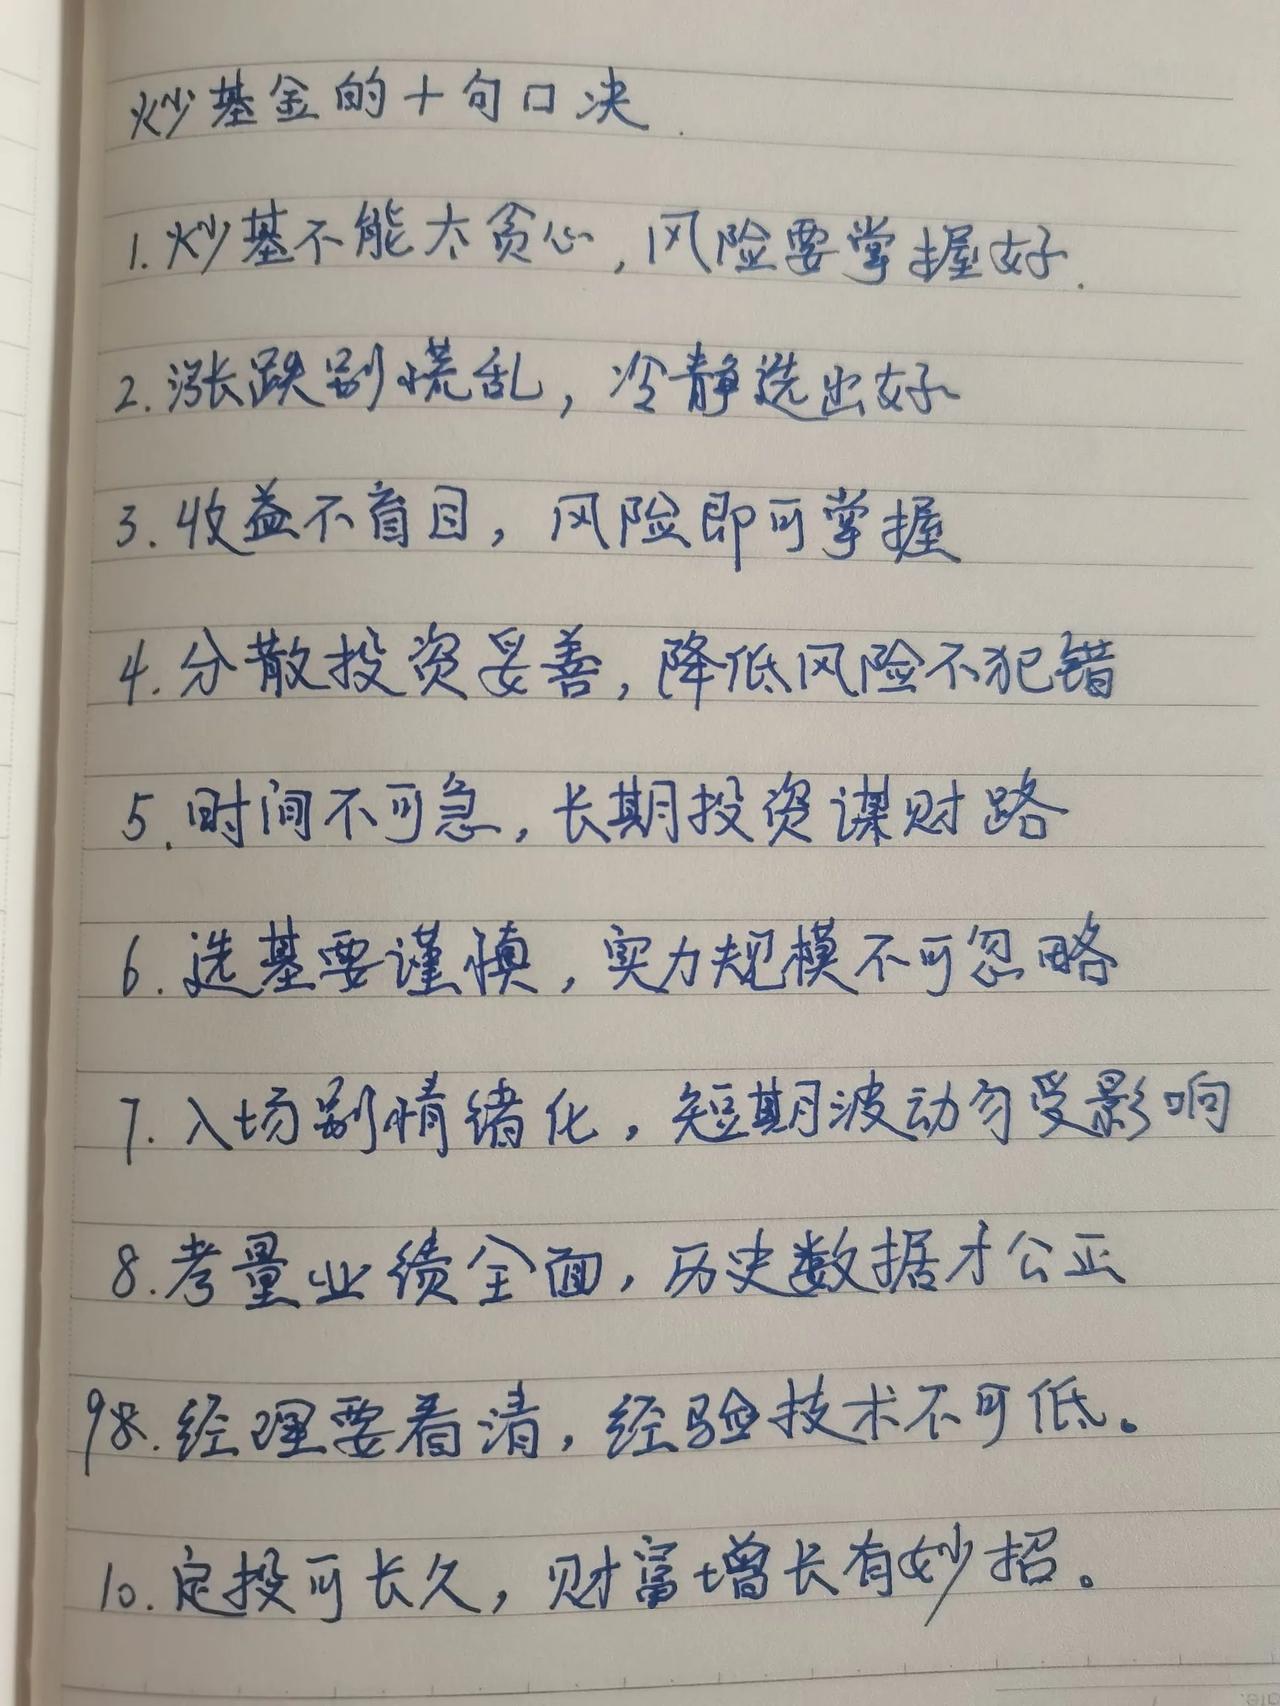 炒基金的十句口决.
1. 炒基不能太贪心,风险要掌握好.
2. 涨跌别慌乱,冷静选出好
3. 收益不盲目,风险即可掌握
4. 分散投资妥善,降低风险不犯错
5. 时间不可急,长期投资谋财路
6. 选基要谨慎,实力规模不可忽略
7. 入场别情绪化,短期波动勿受影响
8. 考量业绩全面,历史数据才公正
98. 经理要看清,经验技术不可低。
10. 定投可长久,财富增长有妙招。